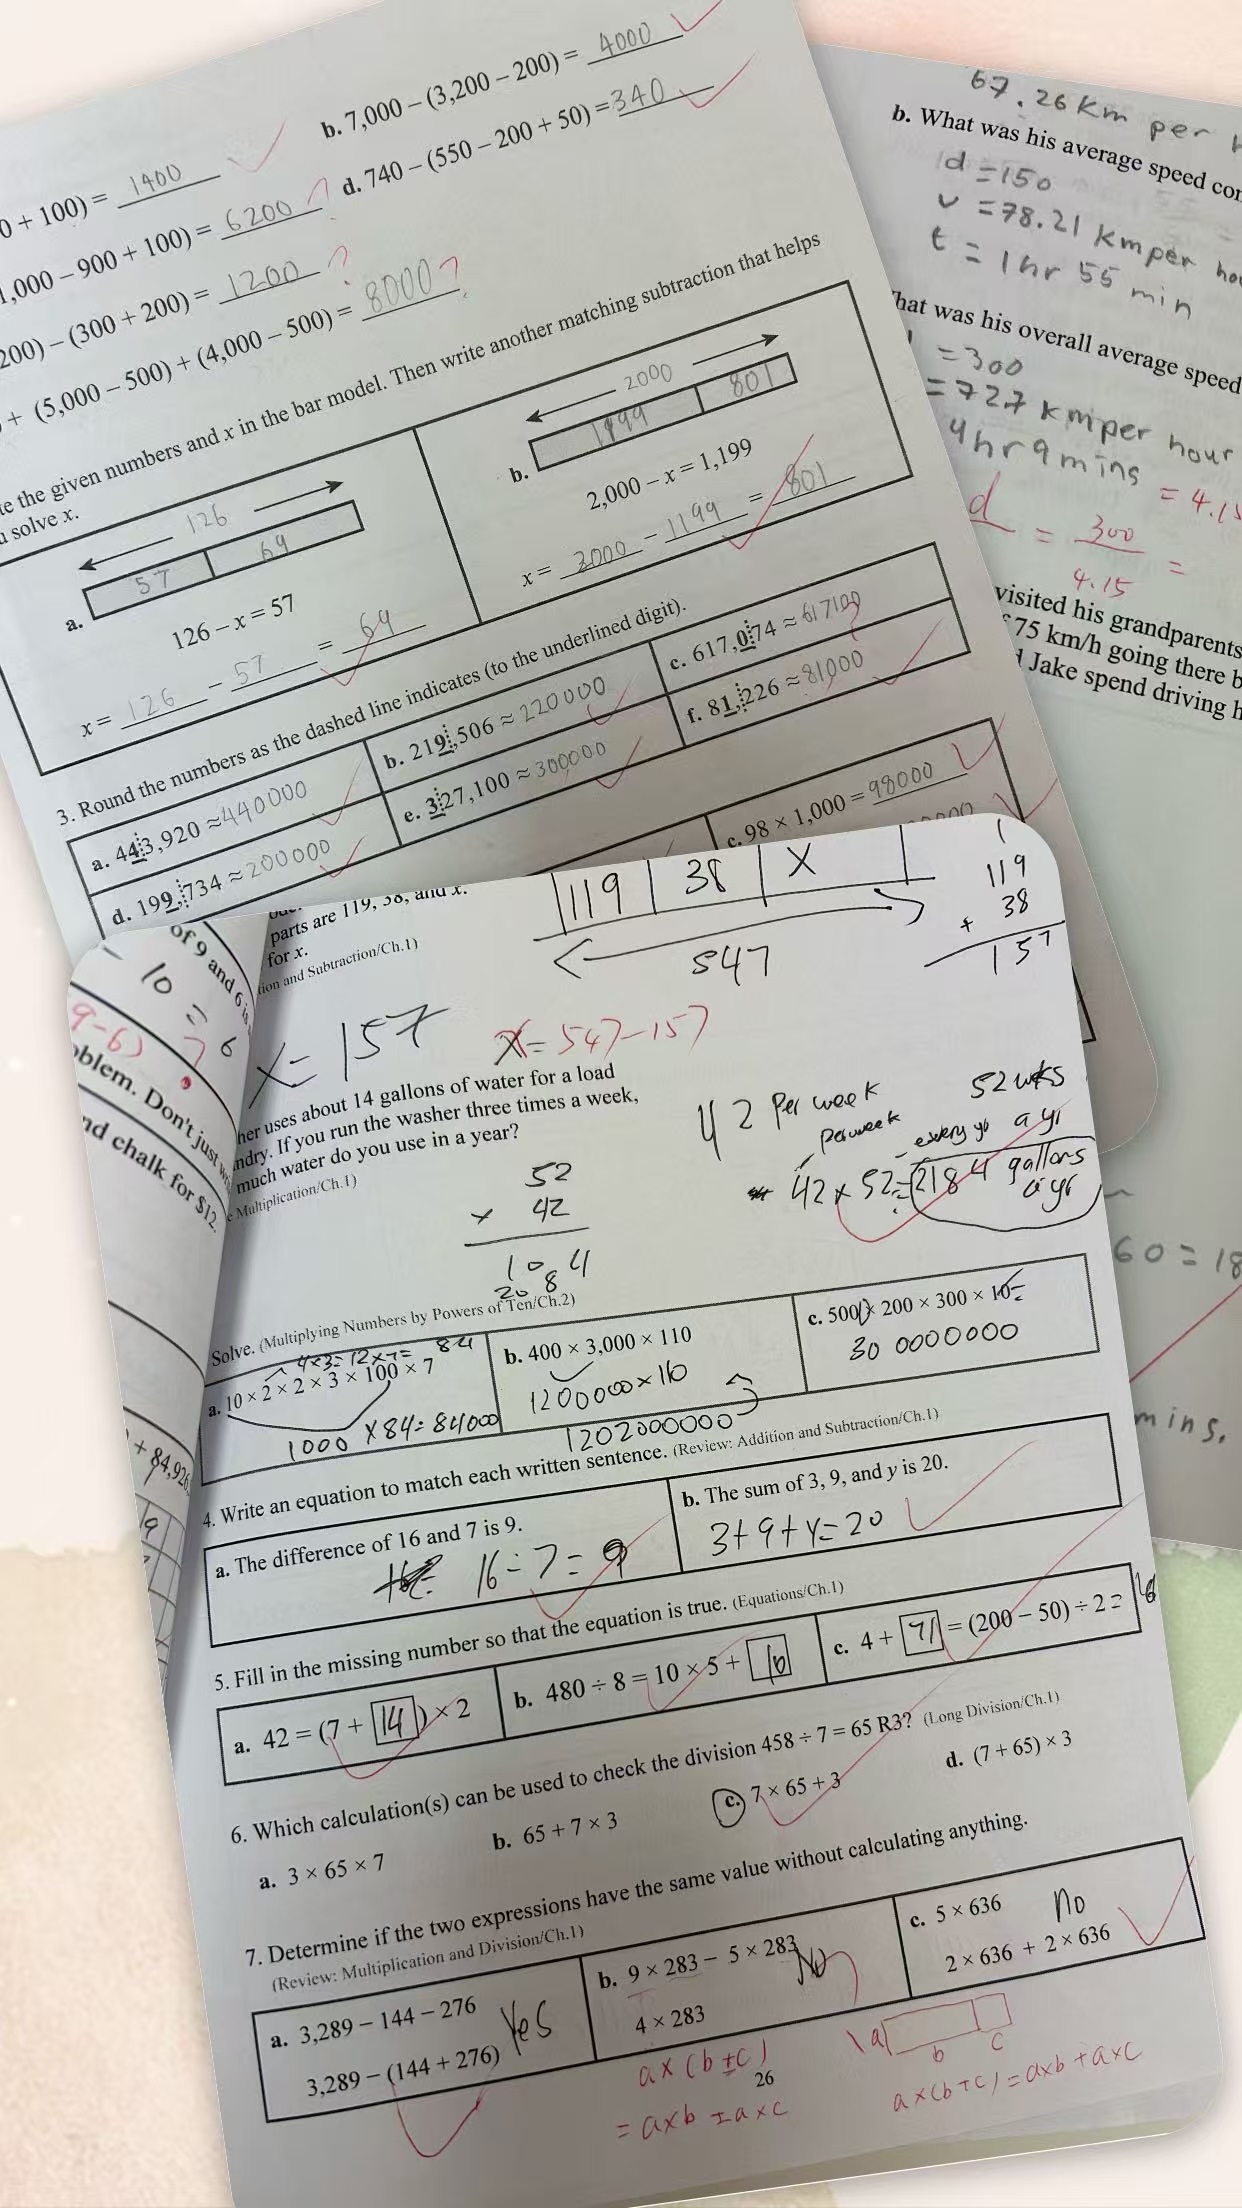 b. 7,000 – (3,200 – 200) = 4000
0 + 100) = 1400
d. 740 – (550 – 200 + 50) = 340
1,000 – 900 + 100) = 6200 ?
200) – (300 + 200) = 1200 ?
+ (5,000 – 500) + (4,000 – 500) = 8000 ?
te the given numbers and x in the bar model. Then write another matching subtraction that helps
u solve x.
126
57 69
a.
126 – x = 57
x = 126 – 57 = 69
2000
1199 801
b.
2,000 – x = 1,199
x = 2000 – 1199 = 801
3. Round the numbers as the dashed line indicates (to the underlined digit).
a. 443,920 ≈ 440000
b. 219,506 ≈ 220000
c. 617,074 ≈ 617100
d. 199,734 ≈ 200000
e. 327,100 ≈ 300000
f. 81,226 ≈ 81000
c. 98 × 1,000 = 98000
67.26 Km per
b. What was his average speed
d = 150
v = 78.21 Km per
t = 1 hr 55 min
hat was his overall average speed
= 300
= 72.7 Km per hour
4 hr 9 mins
= 4.15
d = 300 =
4.15
visited his grandparents
75 km/h going there
Jake spend driving
60 = 18
mins.
of 9 and 6 is
– 10 = 6
9–6) ?
blem. Don't just
nd chalk for $12.
+ 84,926
parts are 119, 38, and x.
for x.
tion and Subtraction/Ch.1)
119 38 X
547
1
119
+ 38
157
X = 157
X = 547–157
her uses about 14 gallons of water for a load
ndry. If you run the washer three times a week,
much water do you use in a year?
e Multiplication/Ch.1)
42 Per week
52 wks
a yr
per week
42 × 52 = 2184 gallons
a yr
52
× 42
104
208
Solve. (Multiplying Numbers by Powers of Ten/Ch.2)
4×3=12×7= 84
a. 10 × 2 × 2 × 3 × 100 × 7
1000 × 84 = 84000
b. 400 × 3,000 × 110
1200000 × 110
1202000000
c. 500 × 200 × 300 × 10 =
30 0000000
4. Write an equation to match each written sentence. (Review: Addition and Subtraction/Ch.1)
a. The difference of 16 and 7 is 9.
16 – 7 = 9
b. The sum of 3, 9, and y is 20.
3+9+y=20
5. Fill in the missing number so that the equation is true. (Equations/Ch.1)
a. 42 = (7 + 14) × 2
b. 480 ÷ 8 = 10 × 5 + 10
c. 4 + 71 = (200 – 50) ÷ 2 =
6. Which calculation(s) can be used to check the division 458 ÷ 7 = 65 R3? (Long Division/Ch.1)
a. 3 × 65 × 7
b. 65 + 7 × 3
c. 7 × 65 + 3
d. (7 + 65) × 3
7. Determine if the two expressions have the same value without calculating anything.
(Review: Multiplication and Division/Ch.1)
a. 3,289 – 144 – 276
3,289 – (144 + 276)
Yes
b. 9 × 283 – 5 × 283
4 × 283
No
c. 5 × 636
2 × 636 + 2 × 636
No
a × (b ± c)
= a×b ± a×c
26
a
b c
a×(b+c) = a×b + a×c